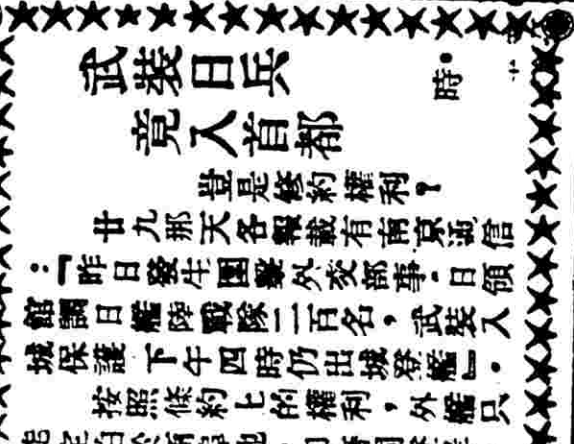 武裝日兵
時。
竟入首都
豈是修約權利?
廿九那天各報載有南京通信
:「昨日發生圍擊外交部事.日領
館調日艦陸戰隊二百名,武裝入
城保護下午四時仍出城登艦」.
按照條約上的權利,外艦只